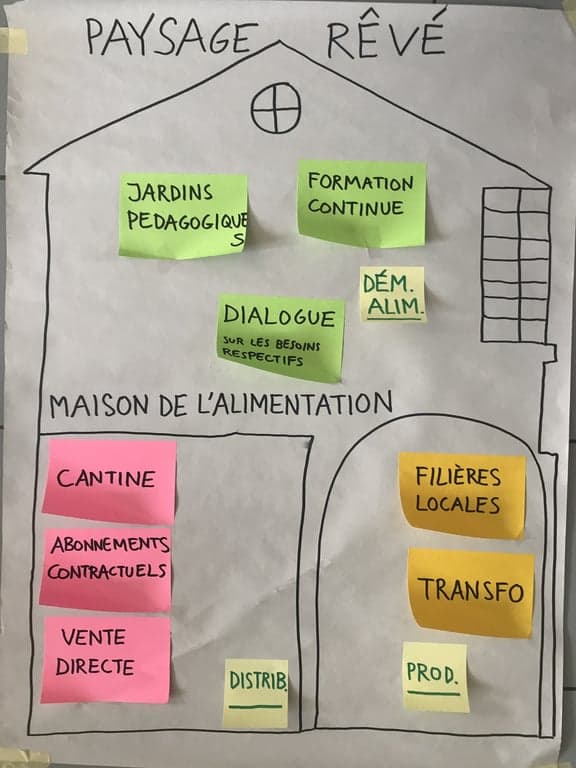 PAYSAGE RÊVÉ
JARDINS
PEDAGOGIQUE
S
FORMATION
CONTINUE
DÉM.
ALIM.
DIALOGUE
SUR LES BESOINS
RESPECTIFS
MAISON DE L'ALIMENTATION
CANTINE
ABONNEMENTS
CONTRACTUELS
VENTE
DIRECTE
DISTRIB.
FILIÈRES
LOCALES
TRANSFO
PROD.